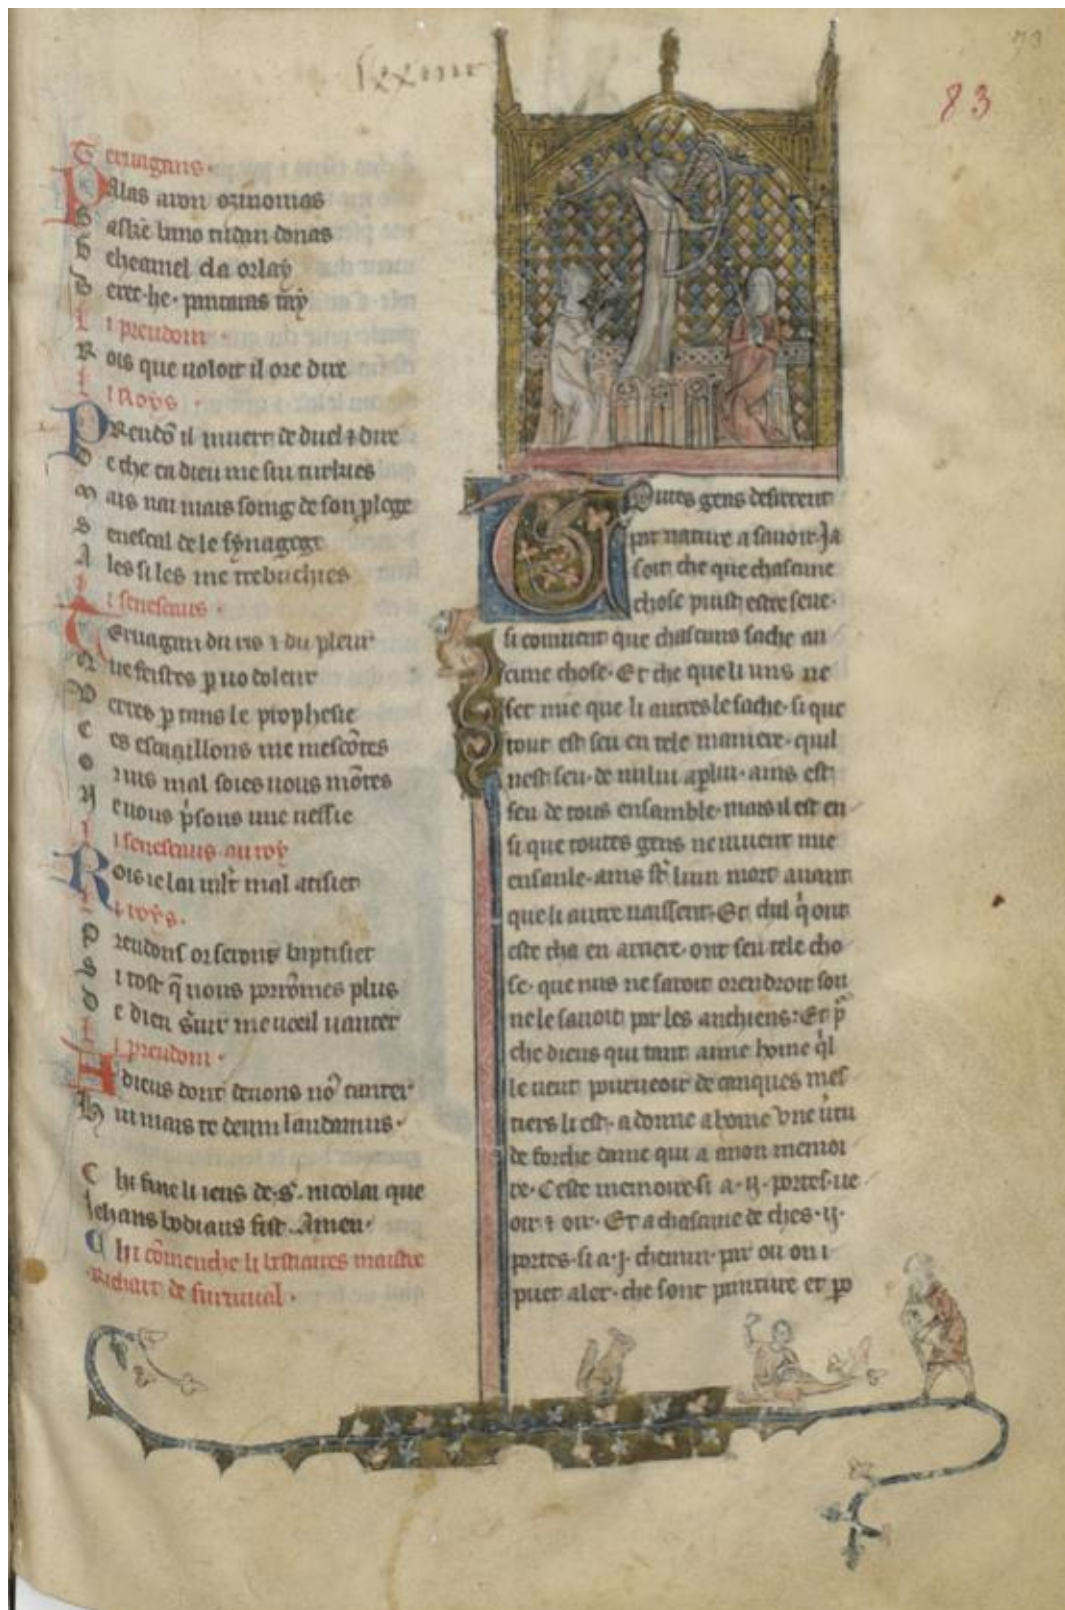 lxxiiii
73
83
Teruagans.
Palas aron ozinomas
Baske bano tudan donas
Geheamel cla orlay
Berec .he. pantaras tay
Li preudom.
Rois que voloit il ore dire
Li Roys.
Preudō il muert de duel ⁊ dire
De che ca dieu me sui turkies
Mais nai mais soing de son plege
Senescal de le synagoge
Ales si les me trebuchies
Li senescaus.
Teruagan du ris ⁊ du pleur
Que feistes p vo doleur
le prophesie
mal soies vous mōtes
Li senescaus au roy
Rois ie lai mlt mal atisier
Li roys.
Preudons or serons baptisiet
Si tost q̄ nous porrōmes plus
De dieu seruir me voeil vanter
Li preudom.
A dieu dont deuons no canter
Hui mais te deum laudamus.
Chi fine li ieus de .S. nicolai que
Jehans bodiaus fist. Amen.
Chi cōmenche li bestiaires maistre
Richart de furniual.
Toutes gens desirrent
par nature a sauoir. Ja
soit che que chascune
chose puist estre seue.
si conuient que chascuns sache au
cune chose. Et che que li uns ne
set mie que li autres le sache. si que
tout est seu en tele maniere. quil
nest seu. de nului a plain. ains est
seu de tous ensamble. mais il est en
si que toutes gens ne viuent mie
ensanle. ains st li un mort auant
que li autre naissent. Et chil q̄ ont
este cha en arriere. ont seu tele cho
se. que nus ne saroit orendroit son
ne le sauoit par les anchiens. Et p
che dieus qui tant aime home q̄l
le veut pourueoir de canques mes
tiers li est. a donne a home vne vertu
de forche dame qui a a non memoi
re. Ceste memoire si a .ij. portes. ve
oir ⁊ oir. Et a chascune de ches .ij.
portes. si a .j. chemin par ou on i
puet aler. che sont painture et po